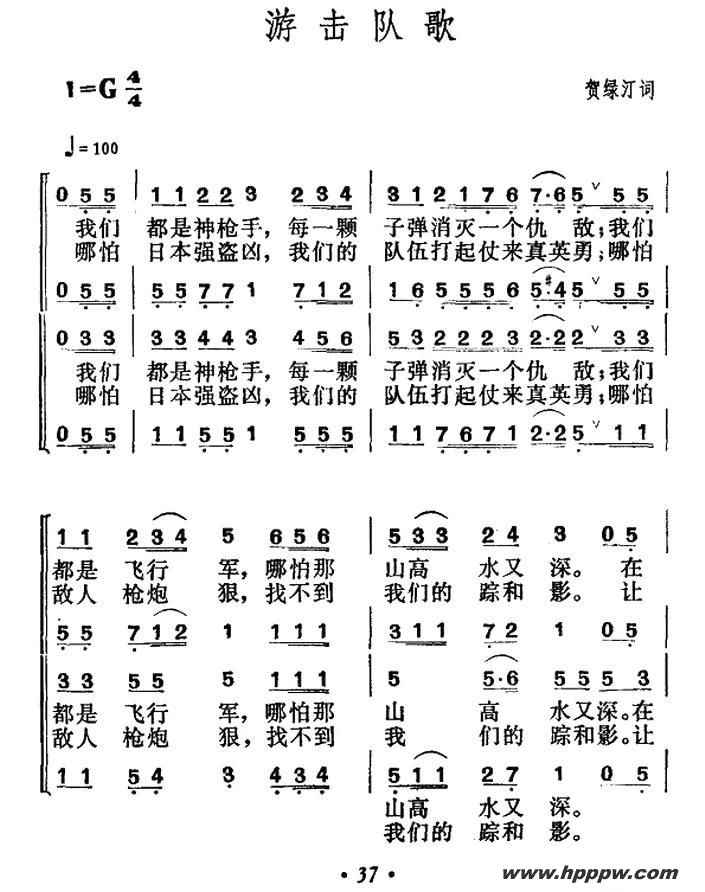 游击队歌
1=G 4/4
贺绿汀词
♩=100
0 5 5 | 1 1 2 2 3 2 3 4 | 3 1 2 1 7 6 7·6 5 ∨ 5 5
我们 都是神枪手，每一颗 子弹消灭一个仇 敌；我们
哪怕 日本强盗凶，我们的 队伍打起仗来真英勇；哪怕
0 5 5 | 5 5 7 7 1 7 1 2 | 1 6 5 5 5 6 5·#4 5 ∨ 5 5
0 3 3 | 3 3 4 4 3 4 5 6 | 5 3 2 2 2 3 2·2 2 ∨ 3 3
我们 都是神枪手，每一颗 子弹消灭一个仇 敌；我们
哪怕 日本强盗凶，我们的 队伍打起仗来真英勇；哪怕
0 5 5 | 1 1 5 5 1 5 5 5 | 1 1 7 6 7 1 2·2 5 ∨ 1 1
1 1 2 3 4 5 6 5 6 | 5 3 3 2 4 3 0 5
都是 飞行 军，哪怕那 山高 水又 深。在
敌人 枪炮 狠，找不到 我们的 踪和 影。让
5 5 7 1 2 1 1 1 1 | 3 1 1 7 2 1 0 5
3 3 5 5 5 1 1 1 | 5 5·6 5 5 5 3
都是 飞行 军，哪怕那 山 高 水又深。在
敌人 枪炮 狠，找不到 我 们的 踪和影。让
1 1 5 4 3 4 3 4 | 5 1 1 2 7 1 0 5
山高 水又 深。
我们的 踪和 影。
· 37 ·
www.hpppw.com